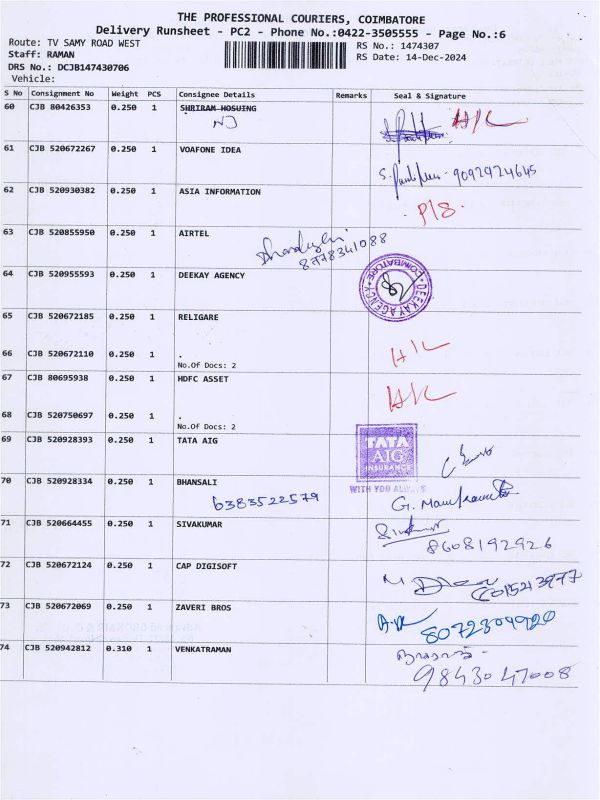 THE PROFESSIONAL COURIERS, COIMBATORE
Delivery Runsheet - PC2 - Phone No.:0422-3505555 - Page No.:6
Route: TV SAMY ROAD WEST
RS No.: 1474307
Staff: RAMAN
RS Date: 14-Dec-2024
DRS No.: DCJB147430706
Vehicle:
S No Consignment No Weight PCS Consignee Details Remarks Seal & Signature
60 CJB 80426353 0.250 1 SHRIRAM HOSUING H/L
61 CJB 520672267 0.250 1 VOAFONE IDEA
9092924645
62 CJB 520930382 0.250 1 ASIA INFORMATION
P/S.
63 CJB 520855950 0.250 1 AIRTEL
8778341088
64 CJB 520955593 0.250 1 DEEKAY AGENCY
DEEKAY AGENCY COIMBATORE
65 CJB 520672185 0.250 1 RELIGARE
66 CJB 520672110 0.250 1 . H/L
No.Of Docs: 2
67 CJB 80695938 0.250 1 HDFC ASSET
H/L
68 CJB 520750697 0.250 1 .
No.Of Docs: 2
69 CJB 520928393 0.250 1 TATA AIG
TATA
AIG
INSURANCE
WITH YOU ALWAYS
70 CJB 520928334 0.250 1 BHANSALI
6383522579
71 CJB 520664455 0.250 1 SIVAKUMAR
8608192926
72 CJB 520672124 0.250 1 CAP DIGISOFT
73 CJB 520672069 0.250 1 ZAVERI BROS
74 CJB 520942812 0.310 1 VENKATRAMAN
9843047008